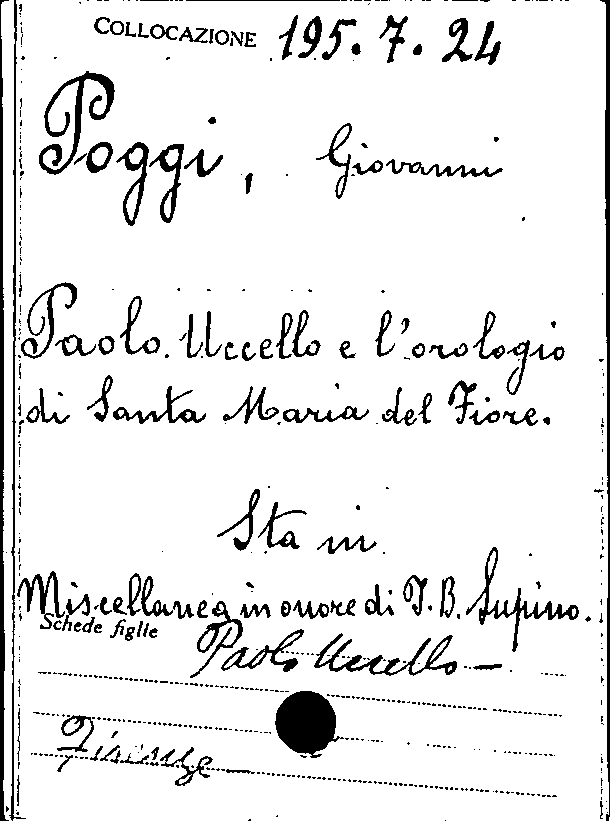 COLLOCAZIONE 195.7.24
Poggi, Giovanni
Paolo Uccello e l'orologio
di Santa Maria del Fiore.
Sta in
Miscellanea in onore di I. B. Supino.
Schede figlie
Paolo Uccello —
Firenze —